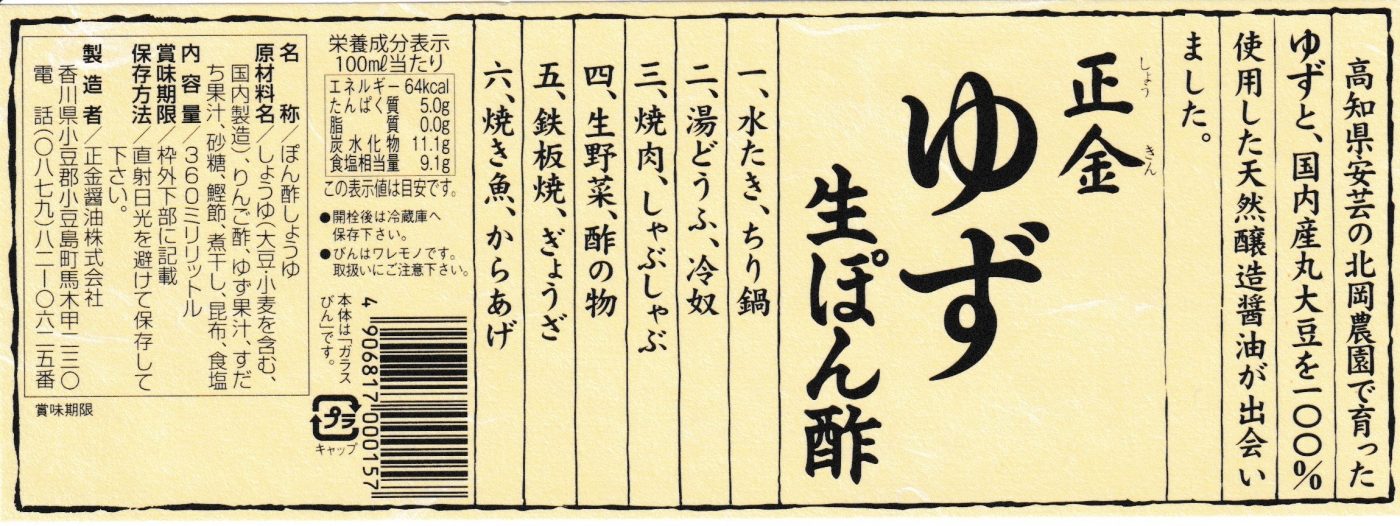 高知県安芸の北岡農園で育った
ゆずと、国内産丸大豆を一〇〇％
使用した天然醸造醤油が出会い
ました。
正金
しょう
きん
ゆず
生ぽん酢
一、水たき、ちり鍋
二、湯どうふ、冷奴
三、焼肉、しゃぶしゃぶ
四、生野菜、酢の物
五、鉄板焼、ぎょうざ
六、焼き魚、からあげ
栄養成分表示
100㎖当たり
エネルギー 64kcal
たんぱく質 5.0g
脂質 0.0g
炭水化物 11.1g
食塩相当量 9.1g
この表示値は目安です。
●開栓後は冷蔵庫へ
保存下さい。
●びんはワレモノです。
取扱いにご注意下さい。
本体は「ガラス
びん」です。
4 906817 000157
プラ
キャップ
名称／ぽん酢しょうゆ
原材料名／しょうゆ（大豆・小麦を含む、
国内製造）、りんご酢、ゆず果汁、すだ
ち果汁、砂糖、鰹節、煮干し、昆布、食塩
内容量／３６０ミリリットル
賞味期限／枠外下部に記載
保存方法／直射日光を避けて保存して
下さい。
製造者／正金醤油株式会社
香川県小豆郡小豆島町馬木甲二三〇
電話（〇八七九）八二－〇六二五番
賞味期限